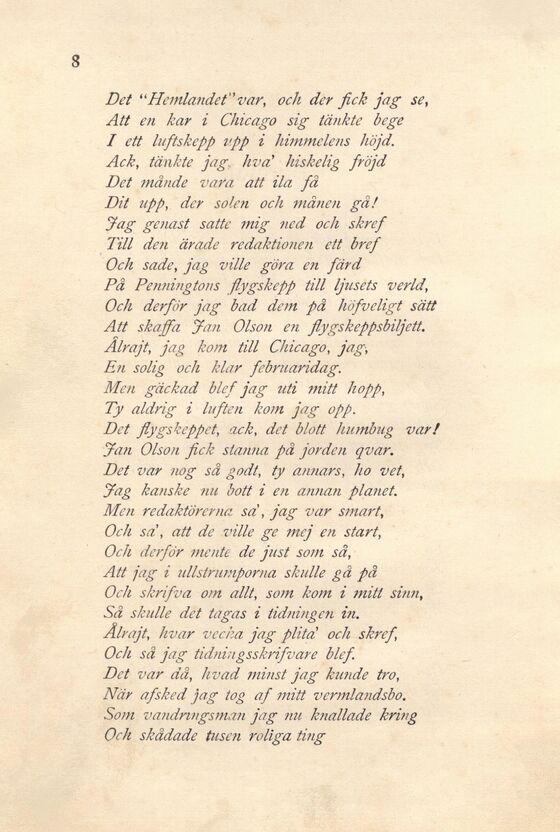 8
Det “Hemlandet” var, och der fick jag se,
Att en kar i Chicago sig tänkte bege
I ett luftskepp upp i himmelens höjd.
Ack, tänkte jag, hva' hiskelig fröjd
Det månde vara att ila få
Dit upp, der solen och månen gå!
Jag genast satte mig ned och skref
Till den ärade redaktionen ett bref
Och sade, jag ville göra en färd
På Penningtons flygskepp till ljusets verld,
Och derför jag bad dem på höfveligt sätt
Att skaffa Jan Olson en flygskeppsbiljett.
Ålrajt, jag kom till Chicago, jag,
En solig och klar februaridag.
Men gäckad blef jag uti mitt hopp,
Ty aldrig i luften kom jag opp.
Det flygskeppet, ack, det blott humbug var!
Jan Olson fick stanna på jorden qvar.
Det var nog så godt, ty annars, ho vet,
Jag kanske nu bott i en annan planet.
Men redaktörerna sa', jag var smart,
Och sa', att de ville ge mej en start,
Och derför mente de just som så,
Att jag i ullstrumporna skulle gå på
Och skrifva om allt, som kom i mitt sinn,
Så skulle det tagas i tidningen in.
Ålrajt, hvar vecka jag plita' och skref,
Och så jag tidningsskrifvare blef.
Det var då, hvad minst jag kunde tro,
När afsked jag tog af mitt vermlandsbo.
Som vandringsman jag nu knallade kring
Och skådade tusen roliga ting